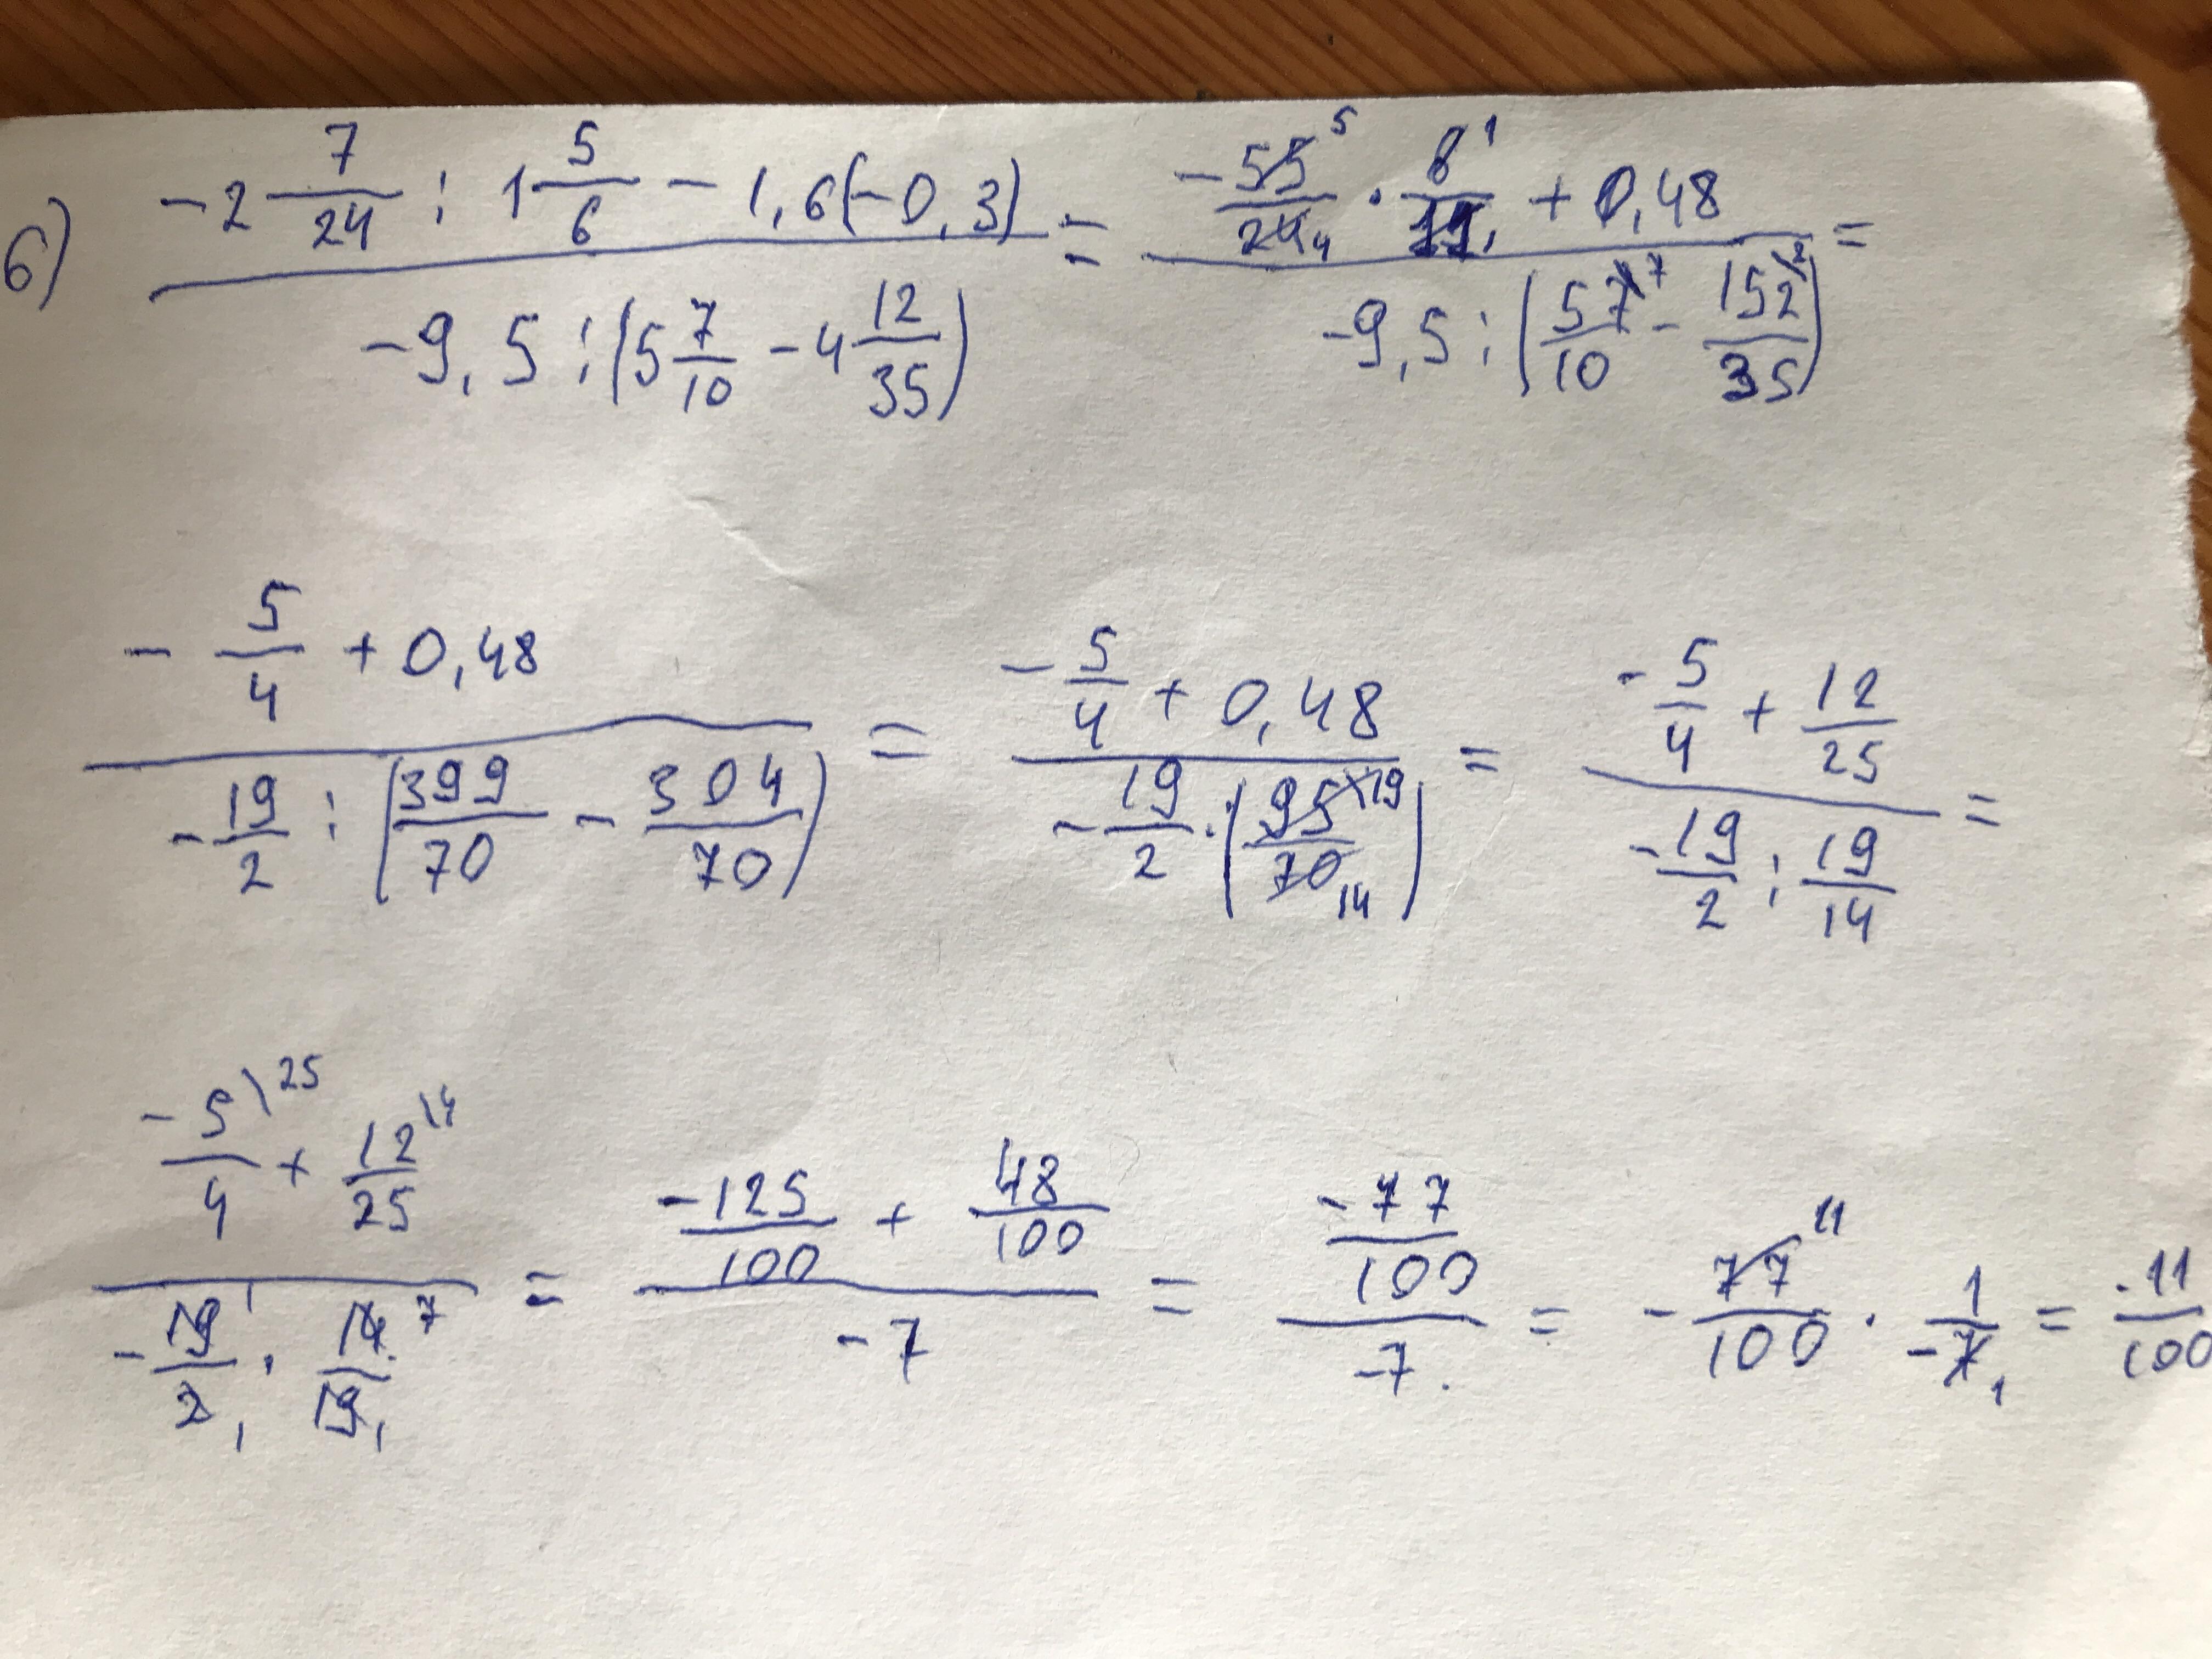 б) (-2 7/24 : 1 5/6 - 1,6(-0,3)) / (-9,5 : (5 7/10 - 4 12/35)) = (-55/24 · 6/11 + 0,48) / (-9,5 : (57/10 - 152/35)) =
(-5/4 + 0,48) / (-19/2 : (399/70 - 304/70)) = (-5/4 + 0,48) / (-19/2 · (95/70)) = (-5/4 + 12/25) / (-19/2 : 19/14) =
(-5/4 + 12/25) / (-19/2 · 14/19) = (-125/100 + 48/100) / -7 = (-77/100) / -7 = -77/100 · 1/-7 = -11/100